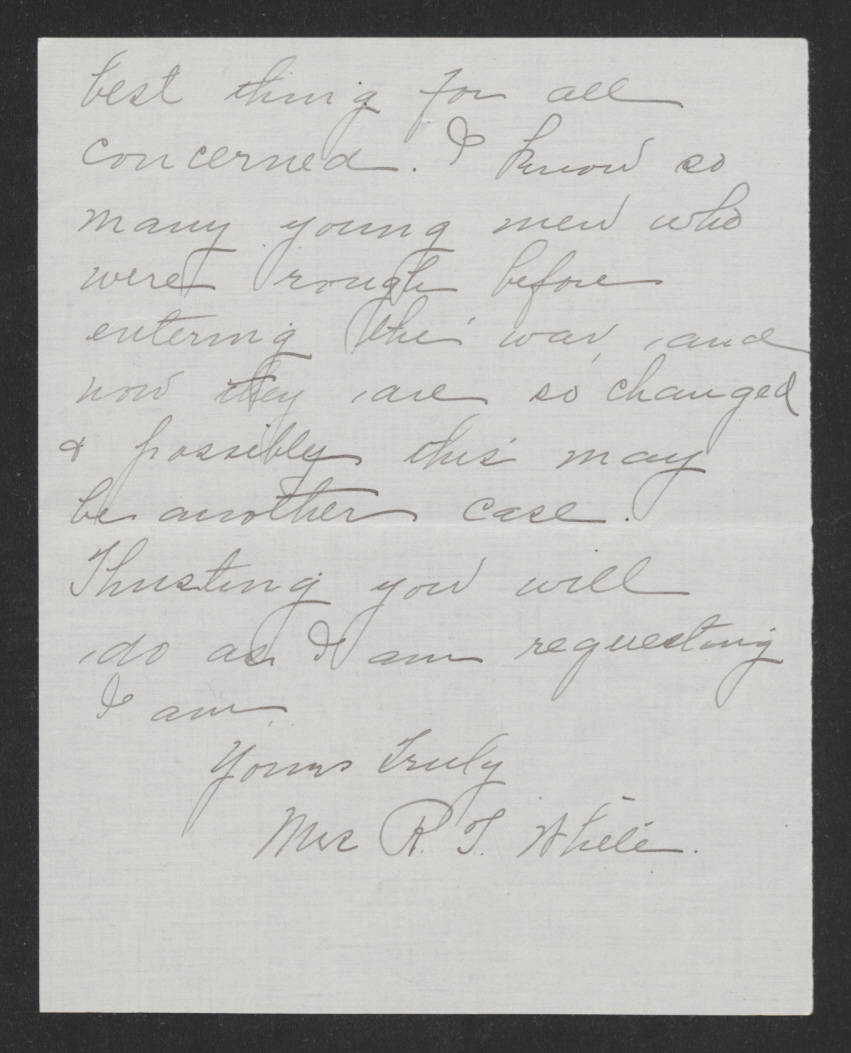 best thing for all
concerned. I know so
many young men who
were rough before
entering the war, and
now they are so changed
& possibly this may
be another case.
Thusting you will
do as I am requesting
I am.
Yours Truly
Mrs R. T. White.